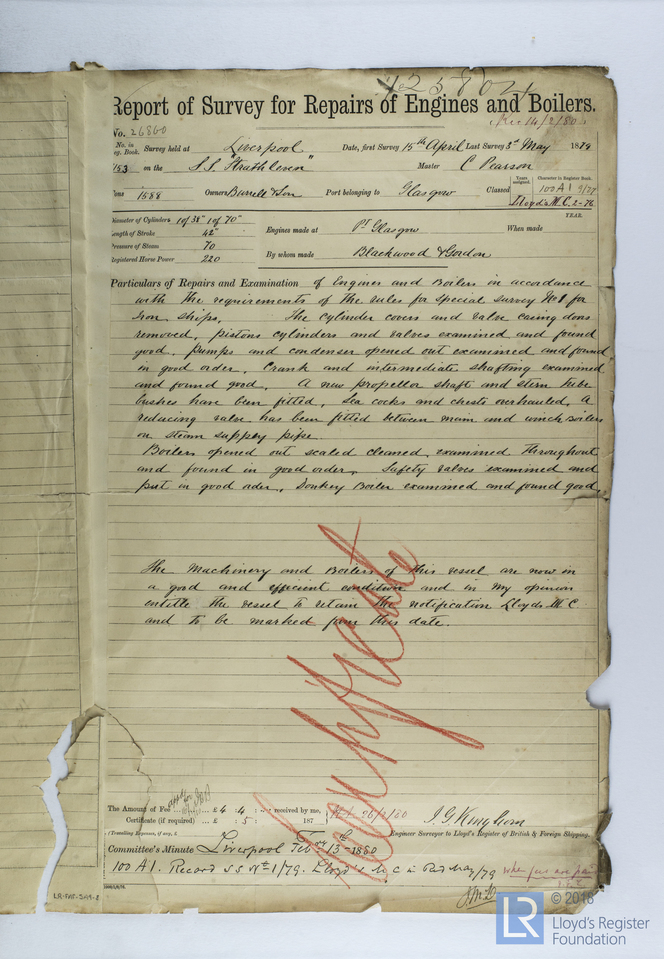 425804
Report of Survey for Repairs of Engines and Boilers.
Rec 14/2/80
No. 26860
No. in Reg. Book. Survey held at Liverpool Date, first Survey 15th April Last Survey 3rd May 1879
153 on the S.S. "Strathleven" Master C Pearson
Tons 1588 Owners Burrell & Son Port belonging to Glasgow Classed Years assigned. Character in Register Book. 100 A1 9/79
Lloyds M.C. 2-76
YEAR.
Diameter of Cylinders 1 of 38" 1 of 70"
Length of Stroke 42" Engines made at Pt Glasgow When made
Pressure of Steam 70
Registered Horse Power 220 By whom made Blackwood & Gordon
Particulars of Repairs and Examination of Engines and Boilers in accordance
with the requirements of the rules for special survey No 1 for
Iron ships. The cylinder covers and valve casing doors
removed, pistons cylinders and valves examined and found
good. Pumps and condenser opened out examined and found
in good order. Crank and intermediate shafting examined
and found good. A new propellor shaft and stern tube
bushes have been fitted. Sea cocks and chests overhauled. A
reducing valve has been fitted between main and winch Boilers
on steam supply pipe.
Boilers opened out scaled cleaned, examined throughout
and found in good order. Safety valves examined and
put in good order. Donkey Boiler examined and found good.
The Machinery and Boilers of this vessel are now in
a good and efficient condition and in my opinion
entitle the vessel to retain the notification Lloyds M.C
and to be marked from this date.
The Amount of Fee ... £ 4 : 4 : - : received by me,
Certificate (if required) ... £ : 5 : 187
(Travelling Expenses, if any, £
J. G. Kinghorn
Engineer Surveyor to Lloyd's Register of British & Foreign Shipping.
Committee's Minute Liverpool Feby 13th 1880
100 A1. Record SS No 1/79. Lloyd's M C in Red May/79 When fees are paid
LR-FAF-
© 2018
LR
Lloyd's Register
Foundation